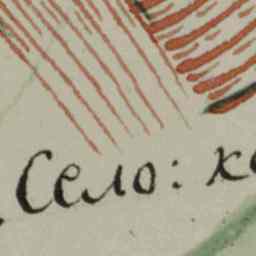 Село: к